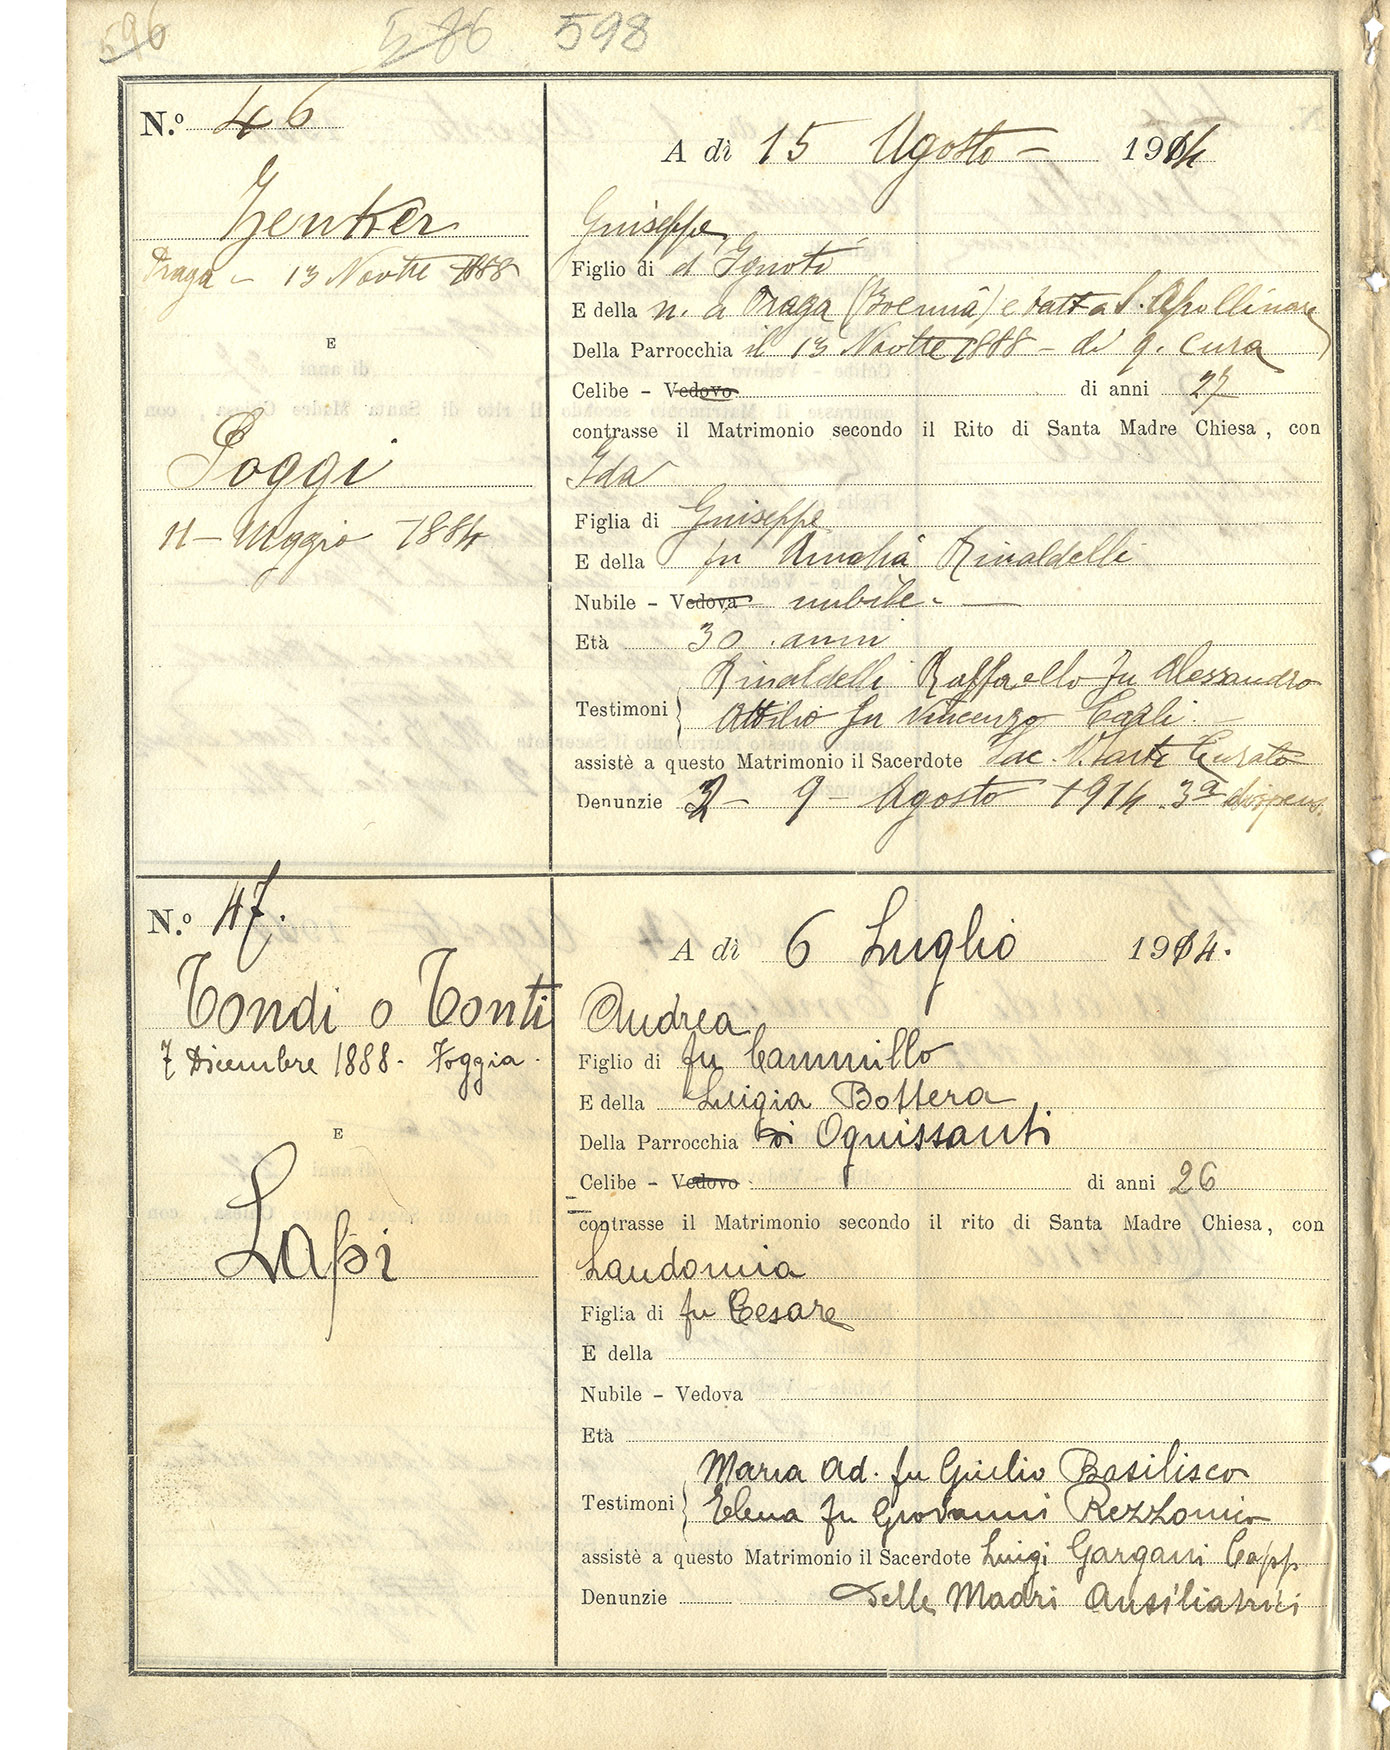 596 586 598
N.º 46
A dì 15 Agosto - 1914
Zenker
Praga - 13 Novbre 1888
E
Poggi
11 - Maggio 1884
Giuseppe
Figlio di d'Ignoti
E della n. a Praga (Boemia) e batt a S. Apollinare
Della Parrocchia il 13 Novbre 1888 - di q. cura
Celibe - Vedovo di anni 27
contrasse il Matrimonio secondo il Rito di Santa Madre Chiesa, con
Ida
Figlia di Giuseppe
E della fu Amalia Rinaldelli
Nubile - Vedova nubile. -
Età 30 anni
Rinaldelli Raffaello fu Alessandro
Testimoni Attilio fu Vincenzo Carli. -
assistè a questo Matrimonio il Sacerdote Sac. Curato
Denunzie 2 - 9 - Agosto 1914. 3ª dispens.
N.º 47.
A dì 6 Luglio 1914.
Tondi o Tonti
7 Dicembre 1888. Foggia.
E
Lapi
Andrea
Figlio di fu Cammillo
E della Luigia Bottera
Della Parrocchia di Ognissanti
Celibe - Vedovo di anni 26
contrasse il Matrimonio secondo il rito di Santa Madre Chiesa, con
Laudomia
Figlia di fu Cesare
E della
Nubile - Vedova
Età
Maria Ad. fu Giulio Basilisco
Testimoni Elena fu Giovanni Rezzonico
assistè a questo Matrimonio il Sacerdote Luigi Gargani Capp
Denunzie delle Madri Ausiliatrici